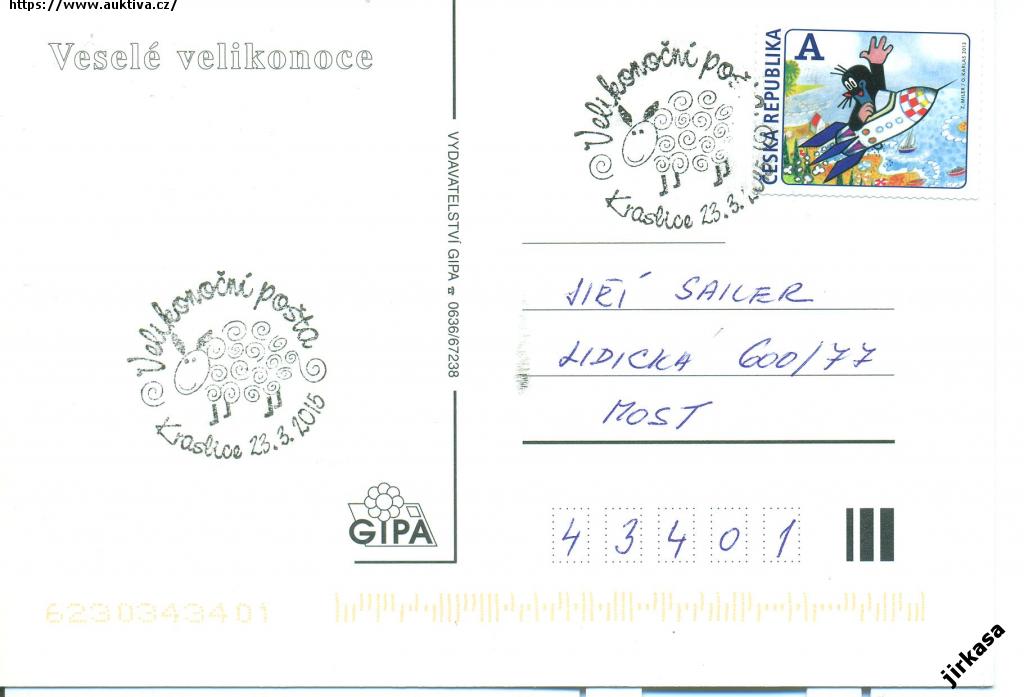 https://www.auktiva.cz/
Veselé velikonoce
Velikonoční pošta
Kraslice 23.3.2015
VYDAVATELSTVÍ GIPA ☎ 0636/67238
GIPA
6230343401
Velikonoční poš
Kraslice 23.3.2015
ČESKÁ REPUBLIKA
A
Z. MILER / O. KARLAS 2013
JIŘÍ SAILER
LIDICKÁ 600/77
MOST
43401
jirkasa